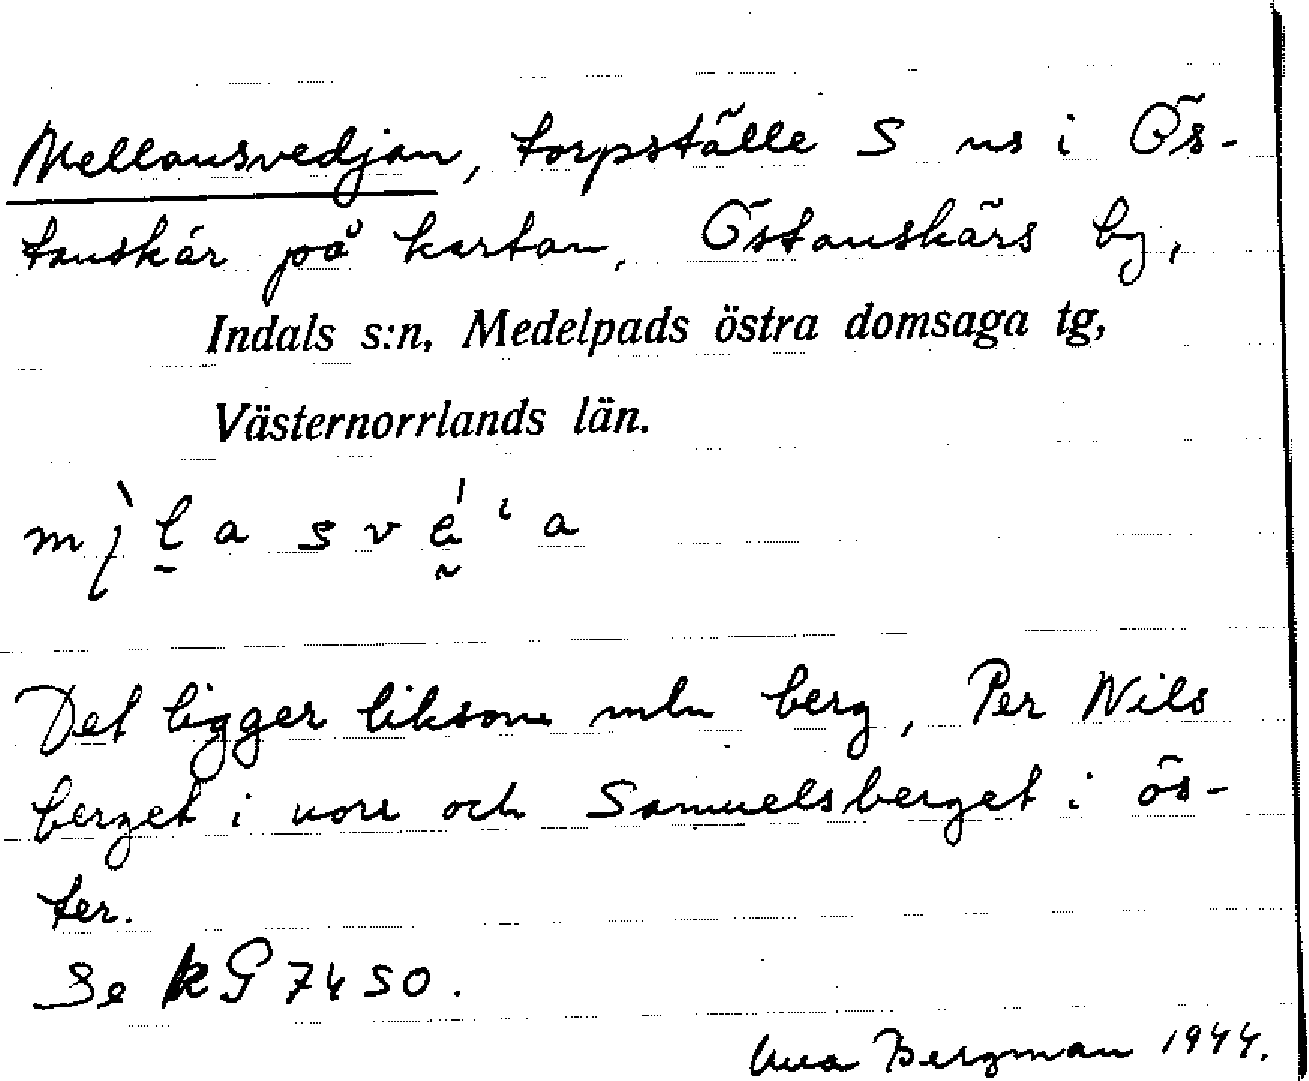 Mellansvedjan, torpställe S ns i Ös-
tanskär på kartan, Östanskärs by,
Indals s:n, Medelpads östra domsaga tg,
Västernorrlands län.
Det ligger liksom mln berg, Per Nils
berget i norr och Samuelsberget i ös-
ter.
Se kG 7450.
Bergman 1944.